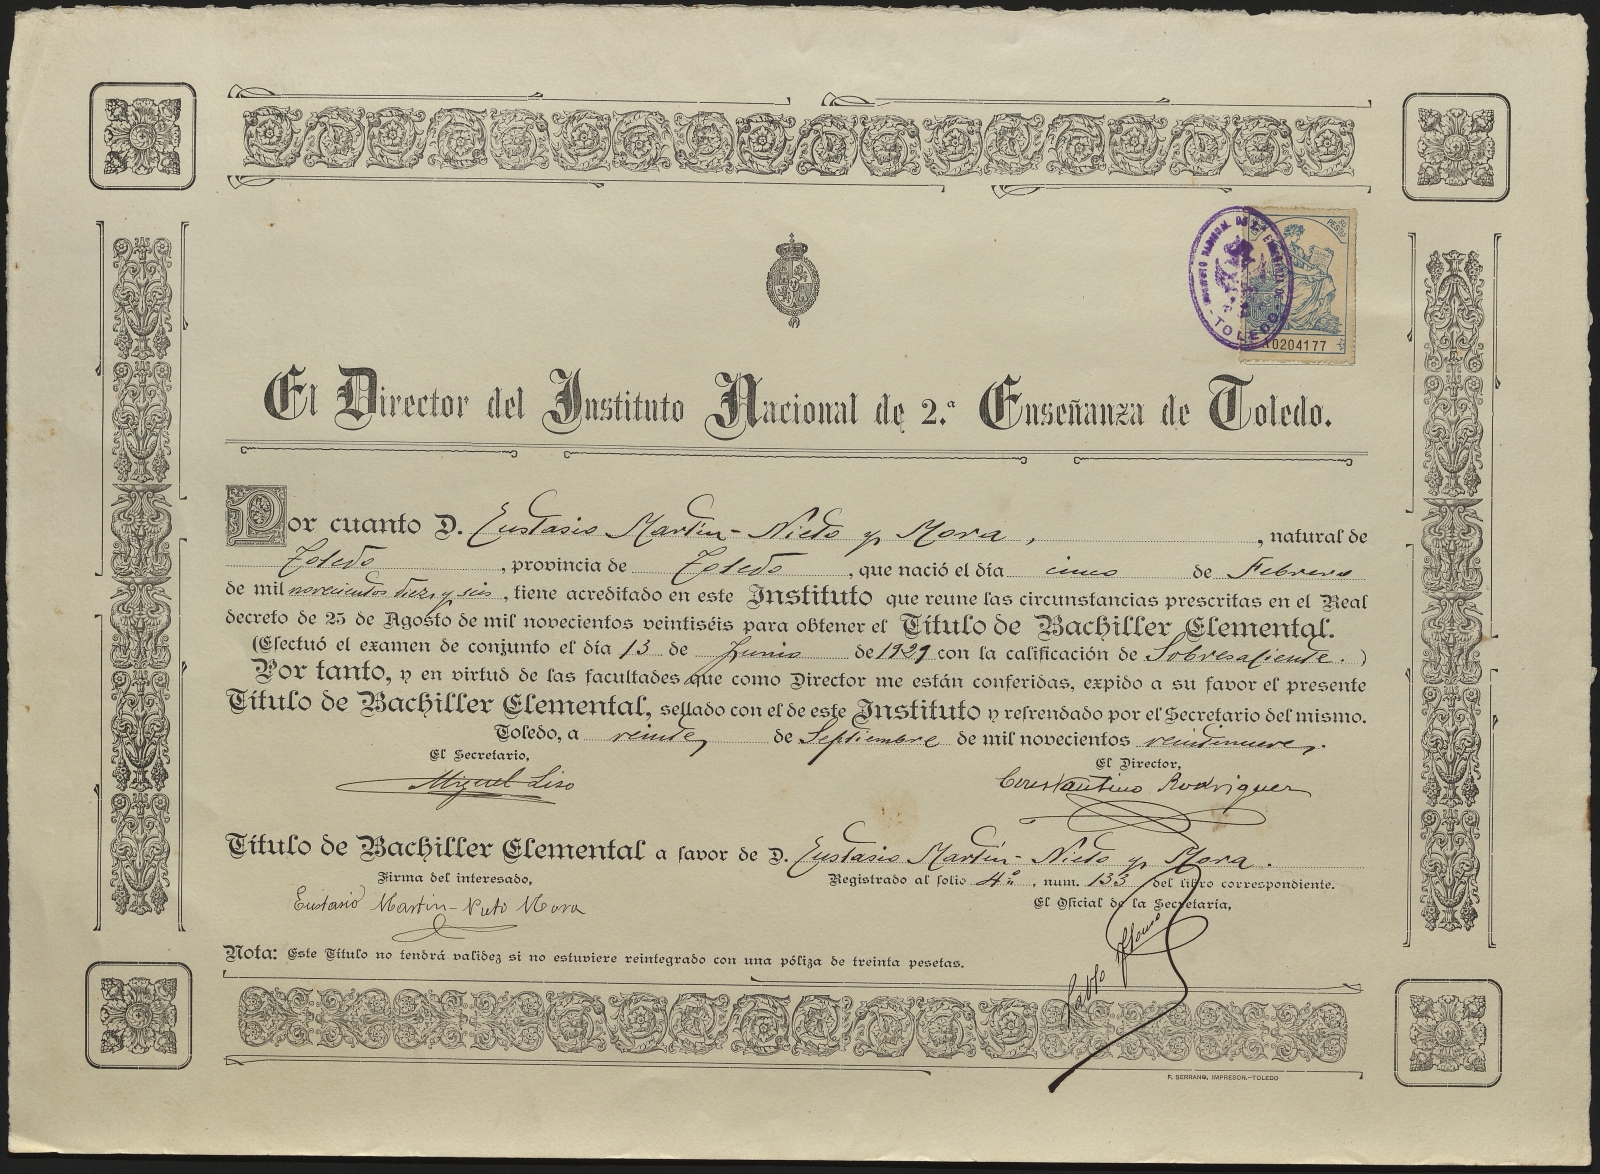 INSTITUTO NACIONAL DE 2ª ENSEÑANZA DE
TOLEDO
30 PESETAS
A0204177
El Director del Instituto Nacional de 2.ª Enseñanza de Toledo.
Por cuanto D. Eustasio Martin-Nieto y Mora, , natural de
Toledo , provincia de Toledo , que nació el día cinco de Febrero
de mil novecientos diez y seis , tiene acreditado en este Instituto que reune las circunstancias prescritas en el Real
decreto de 25 de Agosto de mil novecientos veintiséis para obtener el Título de Bachiller Elemental.
(Efectuó el examen de conjunto el día 13 de Junio de 1929 con la calificación de Sobresaliente.)
Por tanto, y en virtud de las facultades que como Director me están conferidas, expido a su favor el presente
Título de Bachiller Elemental, sellado con el de este Instituto y refrendado por el Secretario del mismo.
Toledo, a veinte de Septiembre de mil novecientos veintinueve.
El Secretario,
El Director,
Miguel Liso
Constantino Rodriguez
Título de Bachiller Elemental a favor de D. Eustasio Martin-Nieto y Mora.
Firma del interesado,
Registrado al folio 4º , num. 133 del libro correspondiente.
Eustasio Martin-Nieto Mora
El Oficial de la Secretaría,
Pablo Alonso
Nota: Este Título no tendrá validez si no estuviere reintegrado con una póliza de treinta pesetas.
F. SERRANO, IMPRESOR.-TOLEDO